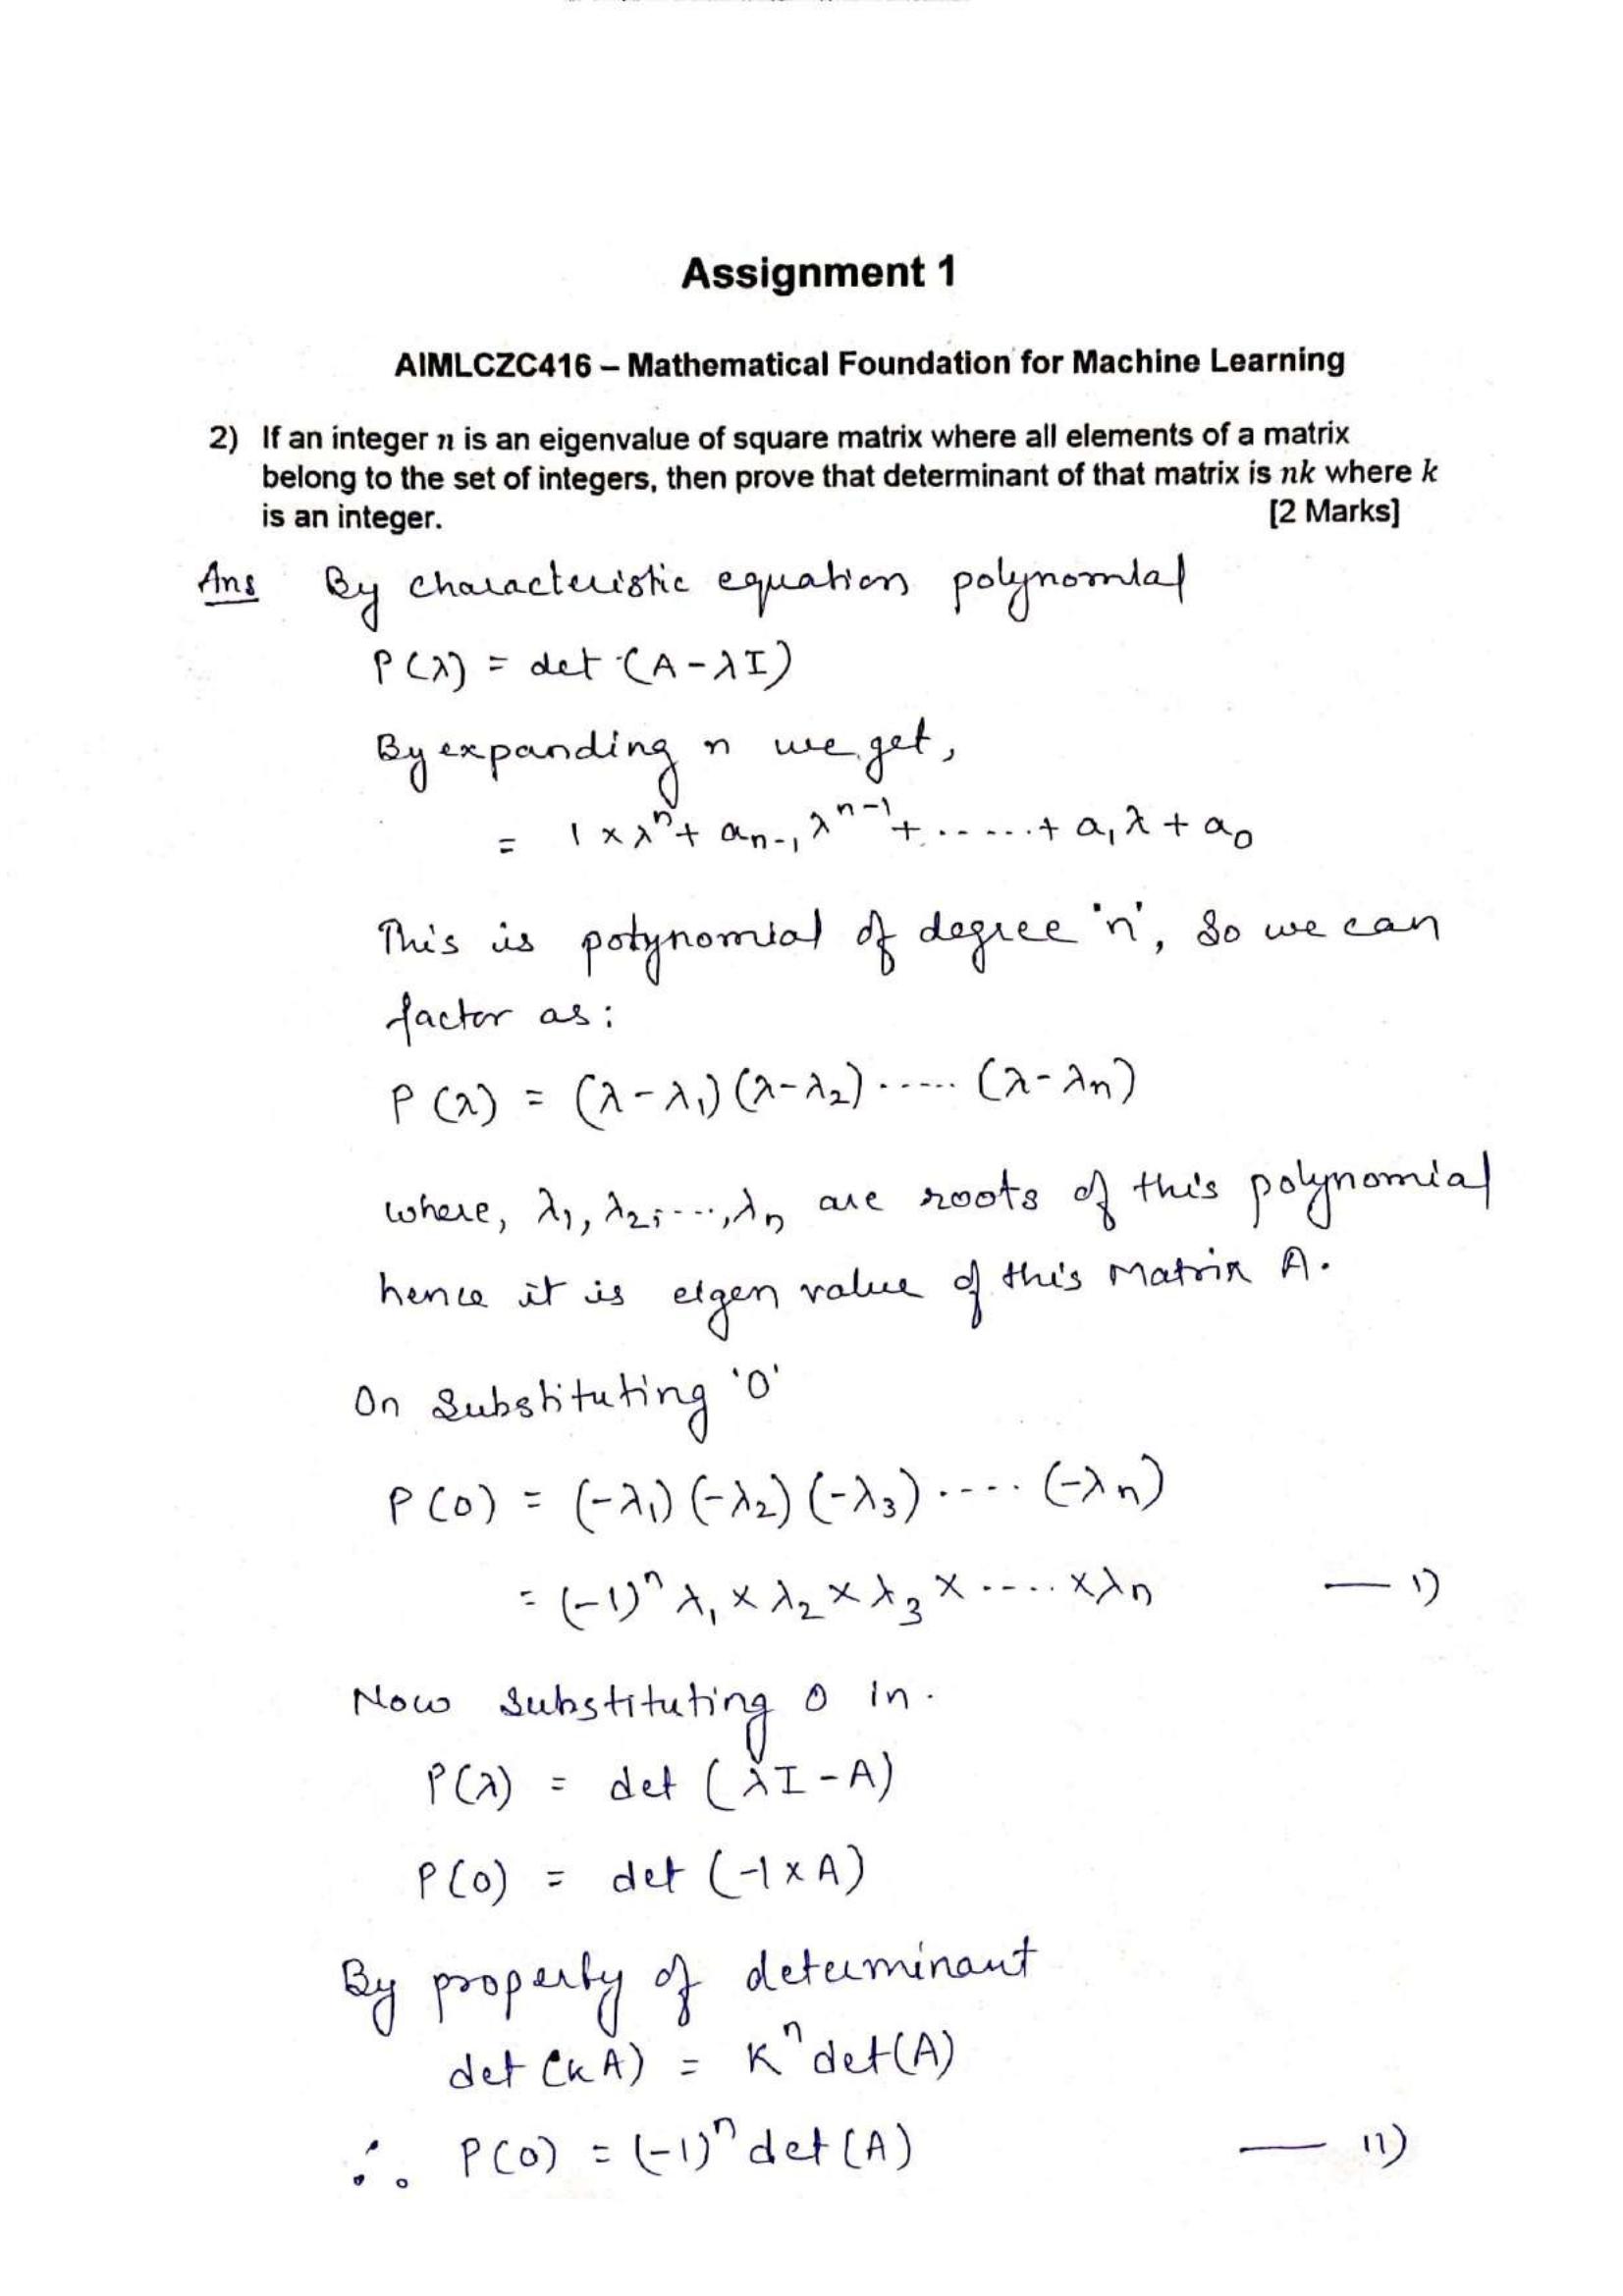 Assignment 1
AIMLCZC416 – Mathematical Foundation for Machine Learning
2) If an integer n is an eigenvalue of square matrix where all elements of a matrix
belong to the set of integers, then prove that determinant of that matrix is nk where k
is an integer. [2 Marks]
Ans By characteristic equation polynomial
P(λ) = det (A-λI)
By expanding n we get,
= 1 × λⁿ + aₙ₋₁ λⁿ⁻¹ + ...... + a₁λ + a₀
This is polynomial of degree 'n', So we can
factor as:
P(λ) = (λ-λ₁)(λ-λ₂) ..... (λ-λₙ)
where, λ₁, λ₂, ..., λₙ are roots of this polynomial
hence it is eigen value of this Matrix A.
On Substituting '0'
P(0) = (-λ₁)(-λ₂)(-λ₃) .... (-λₙ)
= (-1)ⁿ λ₁ × λ₂ × λ₃ × .... × λₙ — 1)
Now substituting 0 in.
P(λ) = det (λI - A)
P(0) = det (-1 × A)
By property of determinant
det (KA) = Kⁿ det(A)
∴ P(0) = (-1)ⁿ det(A) — 11)